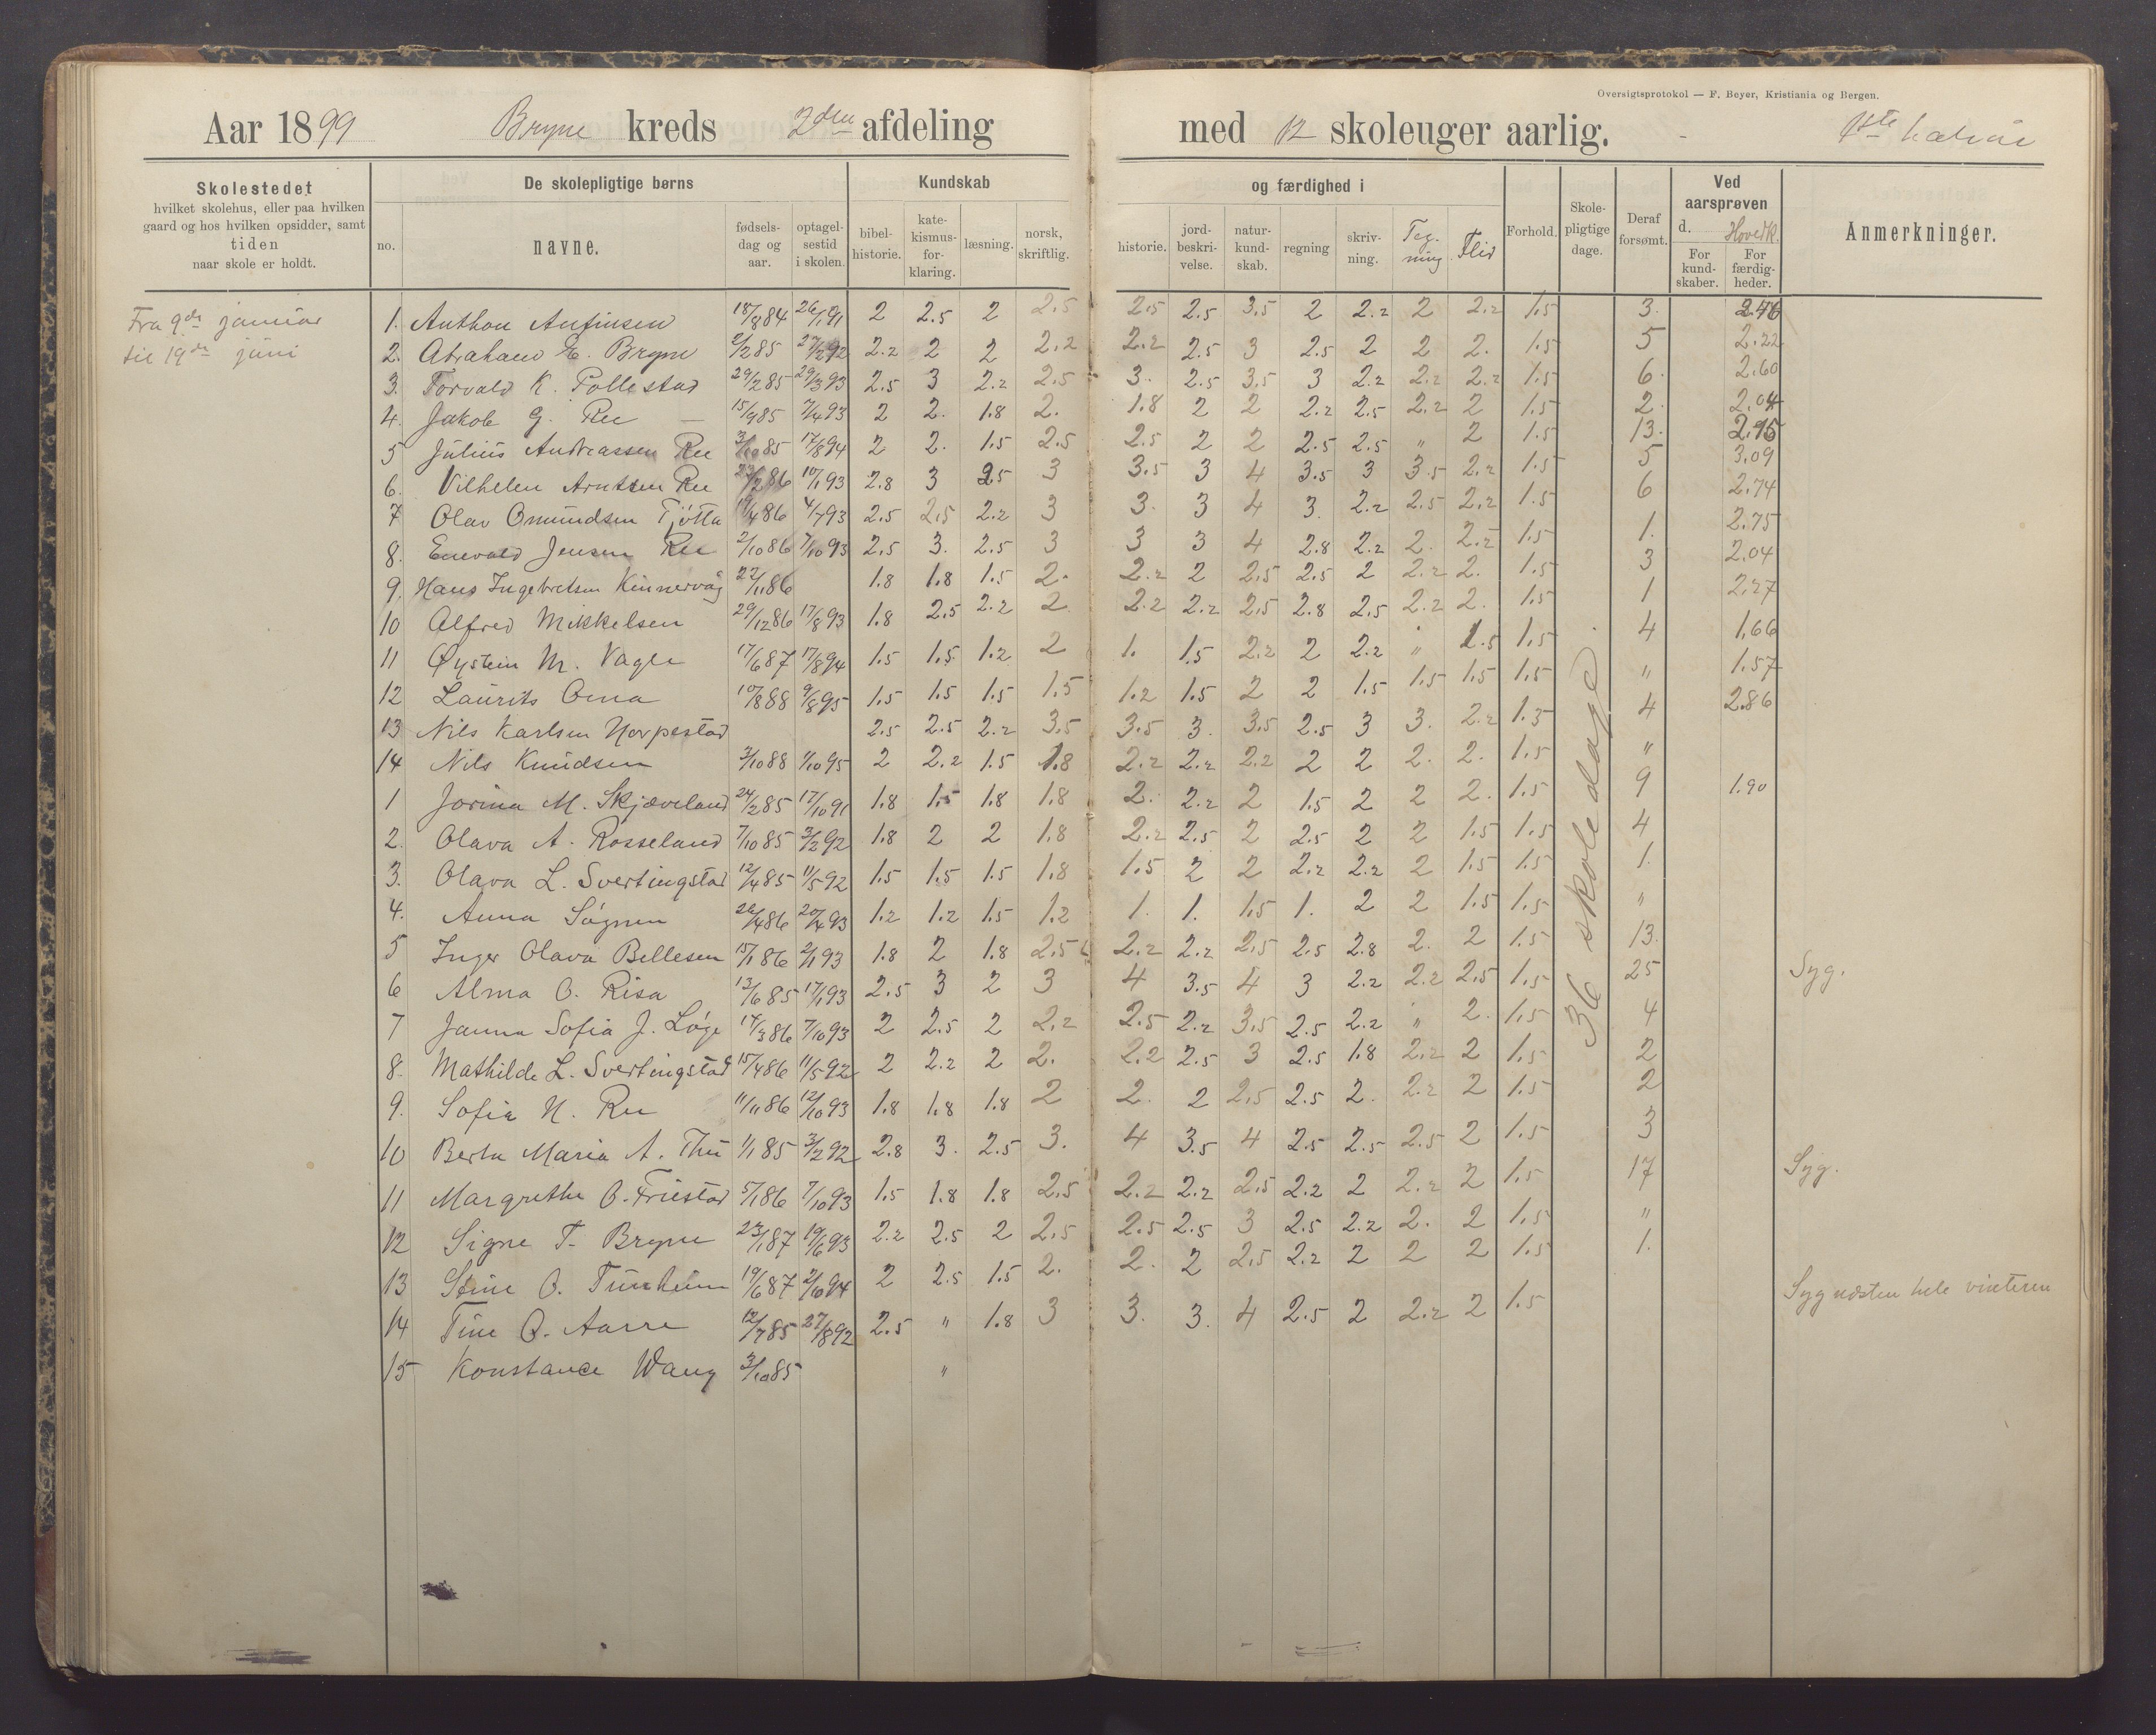 Oversigtsprotokol — F. Beyer, Kristiania og Bergen.
Aar 1899 Bryne kreds 2den afdeling med 12 skoleuger aarlig. - 1ste halvår
Skolestedet hvilket skolehus, eller paa hvilken gaard og hos hvilken opsidder, samt tiden naar skole er holdt.
De skolepligtige børns
no. navne. fødselsdag og aar. optagelsestid i skolen.
Kundskab og færdighed i
bibelhistorie. katekismusforklaring. læsning. norsk, skriftlig. historie. jordbeskrivelse. naturkundskab. regning skrivning. Tegning. Flid
Forhold. Skolepligtige dage. Deraf forsømt.
Ved aarsprøven d. Hovedk.
For kundskaber. For færdigheder.
Anmerkninger.
Fra 9de januar
til 19de juni
36 skoledage
1. Anthon Anfinsen 18/8 84 26/1 91 2 2.5 2 2.5 2.5 2.5 3.5 2 2.2 2 2.2 1.5 3.
2. Abraham E. Bryne 2/2 85 27/2 92 2.2 2 2 2.2 2.2 2.5 3 2.5 2 2 2. 1.5 5 2.22
3. Torvald K. Pollestad 29/2 85 29/3 93 2.5 3 2.2 2.5 3. 2.5 3.5 3 2.2 2.2 2.2 1.5 6. 2.60
4. Jakob G. Ree 15/9 85 7/4 93 2 2. 1.8 2. 1.8 2 2 2.2 2.5 2.2 2 1.5 2. 2.04
5 Julius Andreassen Ree 3/10 85 17/8 94 2 2. 1.5 2.5 2.5 2 2 2.5 2.5 " 2 1.5 13.
6. Vilhelm Arntsen Ree 23/2 86 10/1 93 2.8 3 2.5 3 3.5 3 4 3.5 3 3.5 2.2 1.5 5 3.09
7 Olav Omundsen Tjøtta 19/4 86 4/7 93 2.5 2.5 2.2 3 3. 3 4 3. 2.2 2.5 2.2 1.5 6 2.74
8. Enevald Jensen Ree 2/10 86 7/10 93 2.5 3. 2.5 3 3 3 4 2.8 2.2 2. 2.2 1.5 1. 2.75
9. Hans Ingebretsen Kinnervåg 22/11 86 1.8 1.8 1.5 2. 2.2 2 2.5 2.5 2 2.2 2. 1.5 3 2.04
10 Alfred Mikkelsen 29/12 86 17/8 93 1.8 2.5 2.2 2 2.2 2.2 2.5 2.8 2.5 2.2 2. 1.5 1 2.27
11 Øystein M. Vagle 17/6 87 17/8 94 1.5 1.5 1.2 2 1. 1.5 2.2 2 2.2 " 1.5 1.5 4 1.66
12 Laurits Oma 10/8 88 9/8 95 1.5 1.5 1.5 1.5 1.2 1.5 2 2 1.5 1.5 1.5 1.5 " 1.57
13 Nils Karlsen Norpestad 2.5 2.5 2.2 3.5 3.5 3. 3.5 2.5 3 3. 2.2 1.5 4 2.86
14 Nils Knudsen 3/10 88 1/10 95 2 2.2 1.5 1.8 2.2 2.2 2.2 2 2 2. 2. 1.5 "
1 Jorina M. Skjæveland 24/2 85 17/10 91 1.8 1.5 1.8 1.8 2. 2.2 2 1.5 2 2 2. 1.5 9 1.90
2. Olava A. Rosseland 7/10 85 3/2 92 1.8 2 2 1.8 2.2 2.5 2 2.5 2 2 1.5 1.5 4
3. Olava L. Svertingstad 12/4 85 11/5 92 1.5 1.5 1.5 1.8 1.5 2 2 2.2 2.2 2 1.5 1.5 1.
4. Anna Søgnen 26/4 86 20/4 93 1.2 1.2 1.5 1.2 1. 1. 1.5 1. 2 2 1.5 1.5 "
5 Inger Olava Bellesen 15/1 86 2/1 93 1.8 2 1.8 2.5 2.2 2.2 2.5 2.5 2.8 2. 2 1.5 13.
6 Alma O. Risa 13/6 85 17/1 93 2.5 3 2 3 4 3.5 4 3 2.2 2.2 2.5 1.5 25 Syg.
7 Janna Sofia J. Løge 14/3 86 7/10 93 2 2.5 2 2.2 2.5 2.2 3.5 2.5 2.2 " 2. 1.5 4
8. Mathilde L. Svertingstad 15/4 86 11/5 92 2 2.2 2 2. 2.2 2.5 3 2.5 1.8 2.2 2 1.5 2
9. Sofia N. Ree 11/11 86 12/10 93 1.8 1.8 1.8 2 2. 2 2.5 2.5 2. 2.2 2 1.5 2
10 Berta Maria A. Thu 1/1 85 3/2 92 2.8 3. 2.5 3. 4 3.5 4 2.5 2.5 2.5 2 1.5 3
11 Margrethe O. Friestad 5/1 86 7/10 93 1.5 1.8 1.8 2.5 2.2 2.2 2.5 2.2 2 2.2 2 1.5 17 Syg.
12 Signe T. Bryne 23/1 87 19/6 93 2.2 2.5 2 2.5 2.5 2.5 3 2.5 2.2 2. 2 1.5 "
13 Stine O. Tunheim 19/6 87 2/10 94 2 2.5 1.5 2. 2. 2 2.5 2.2 2 2 2 1.5 1.
14 Tine O. Aarre 12/7 85 27/8 92 2.5 " 1.8 3 3. 3. 4 2.5 2 2.2 2 1.5 Syg næsten hele vinteren
15 Konstance Wang 3/10 85 "